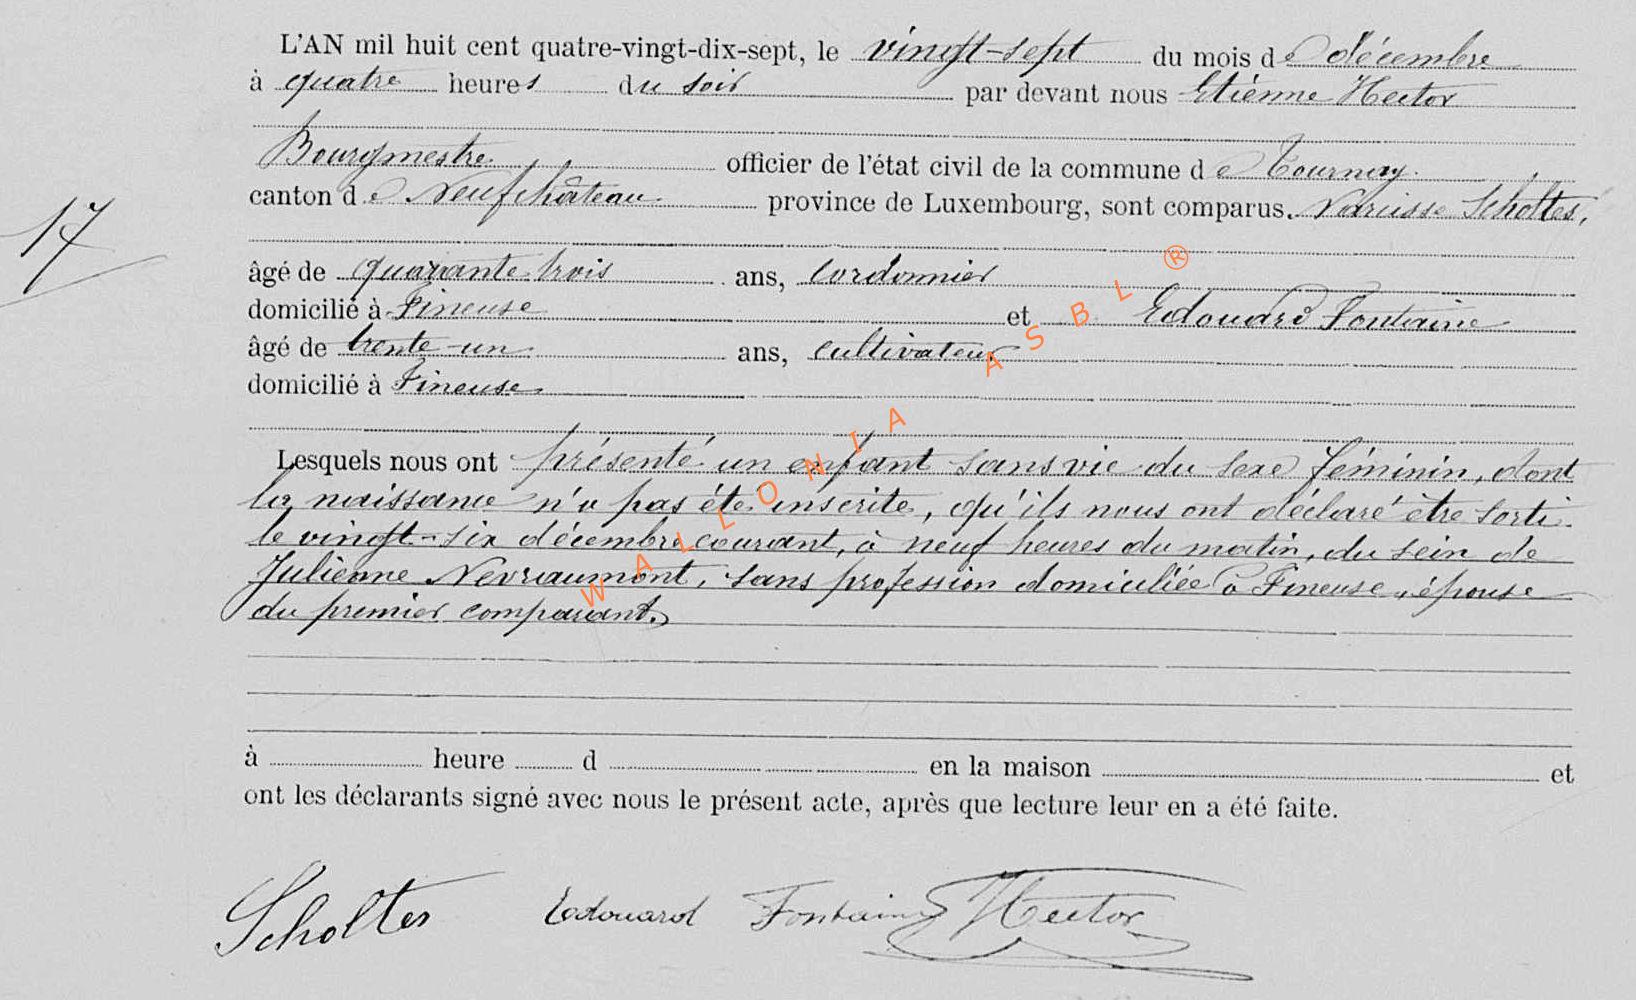 L'AN mil huit cent quatre-vingt-dix-sept, le vingt-sept du mois de décembre
à quatre heures du soir par devant nous Etienne Hector
Bourgmestre officier de l'état civil de la commune de Tournay.
canton de Neufchâteau province de Luxembourg, sont comparus. Narcisse Scholtes,
17
âgé de quarante trois ans, cordonnier
domicilié à Fineuse et Edouard Fontaine
âgé de trente-un ans, cultivateur
domicilié à Fineuse
Lesquels nous ont présenté un enfant sans vie du sexe féminin, dont
la naissance n'a pas été inscrite, qu'ils nous ont déclaré être sorti
le vingt-six décembre courant, à neuf heures du matin, du sein de
Julienne Nevraumont, sans profession domiciliée à Fineuse, épouse
du premier comparant.
à heure d en la maison et
ont les déclarants signé avec nous le présent acte, après que lecture leur en a été faite.
Scholtes Edouard Fontaine Hector
WALLONIA ASBL ®